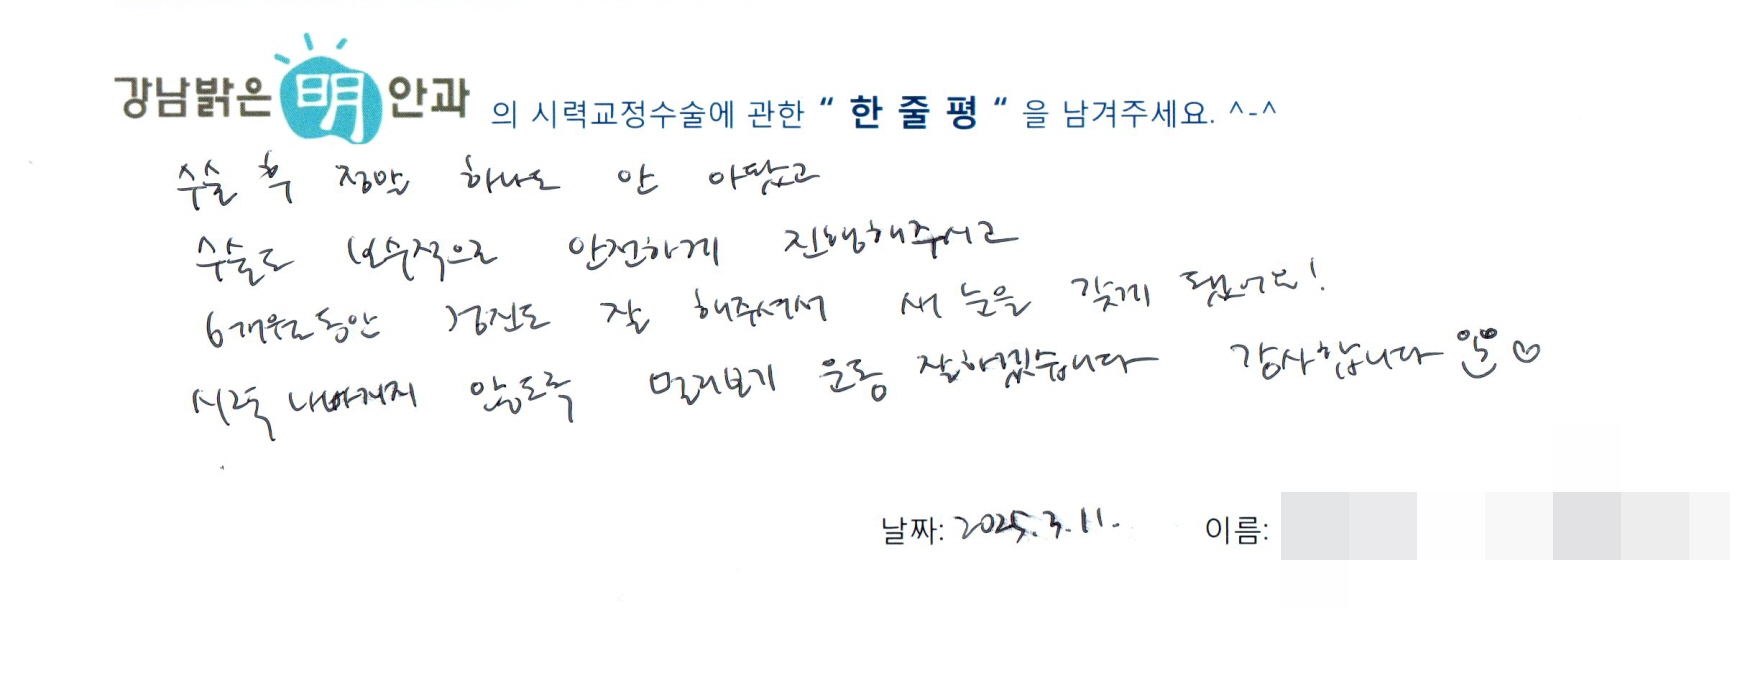 강남밝은明안과 의 시력교정수술에 관한 “ 한 줄 평 “ 을 남겨주세요. ^-^
수술 후 정말 하나도 안 아팠고
수술도 보수적으로 안전하게 진행해주시고
6개월동안 검진도 잘 해주셔서 새 눈을 갖게 됐어요!
시력 나빠지지 않도록 멀리보기 운동 잘하겠습니다 감사합니다 ♡
날짜: 2025.3.11. 이름: